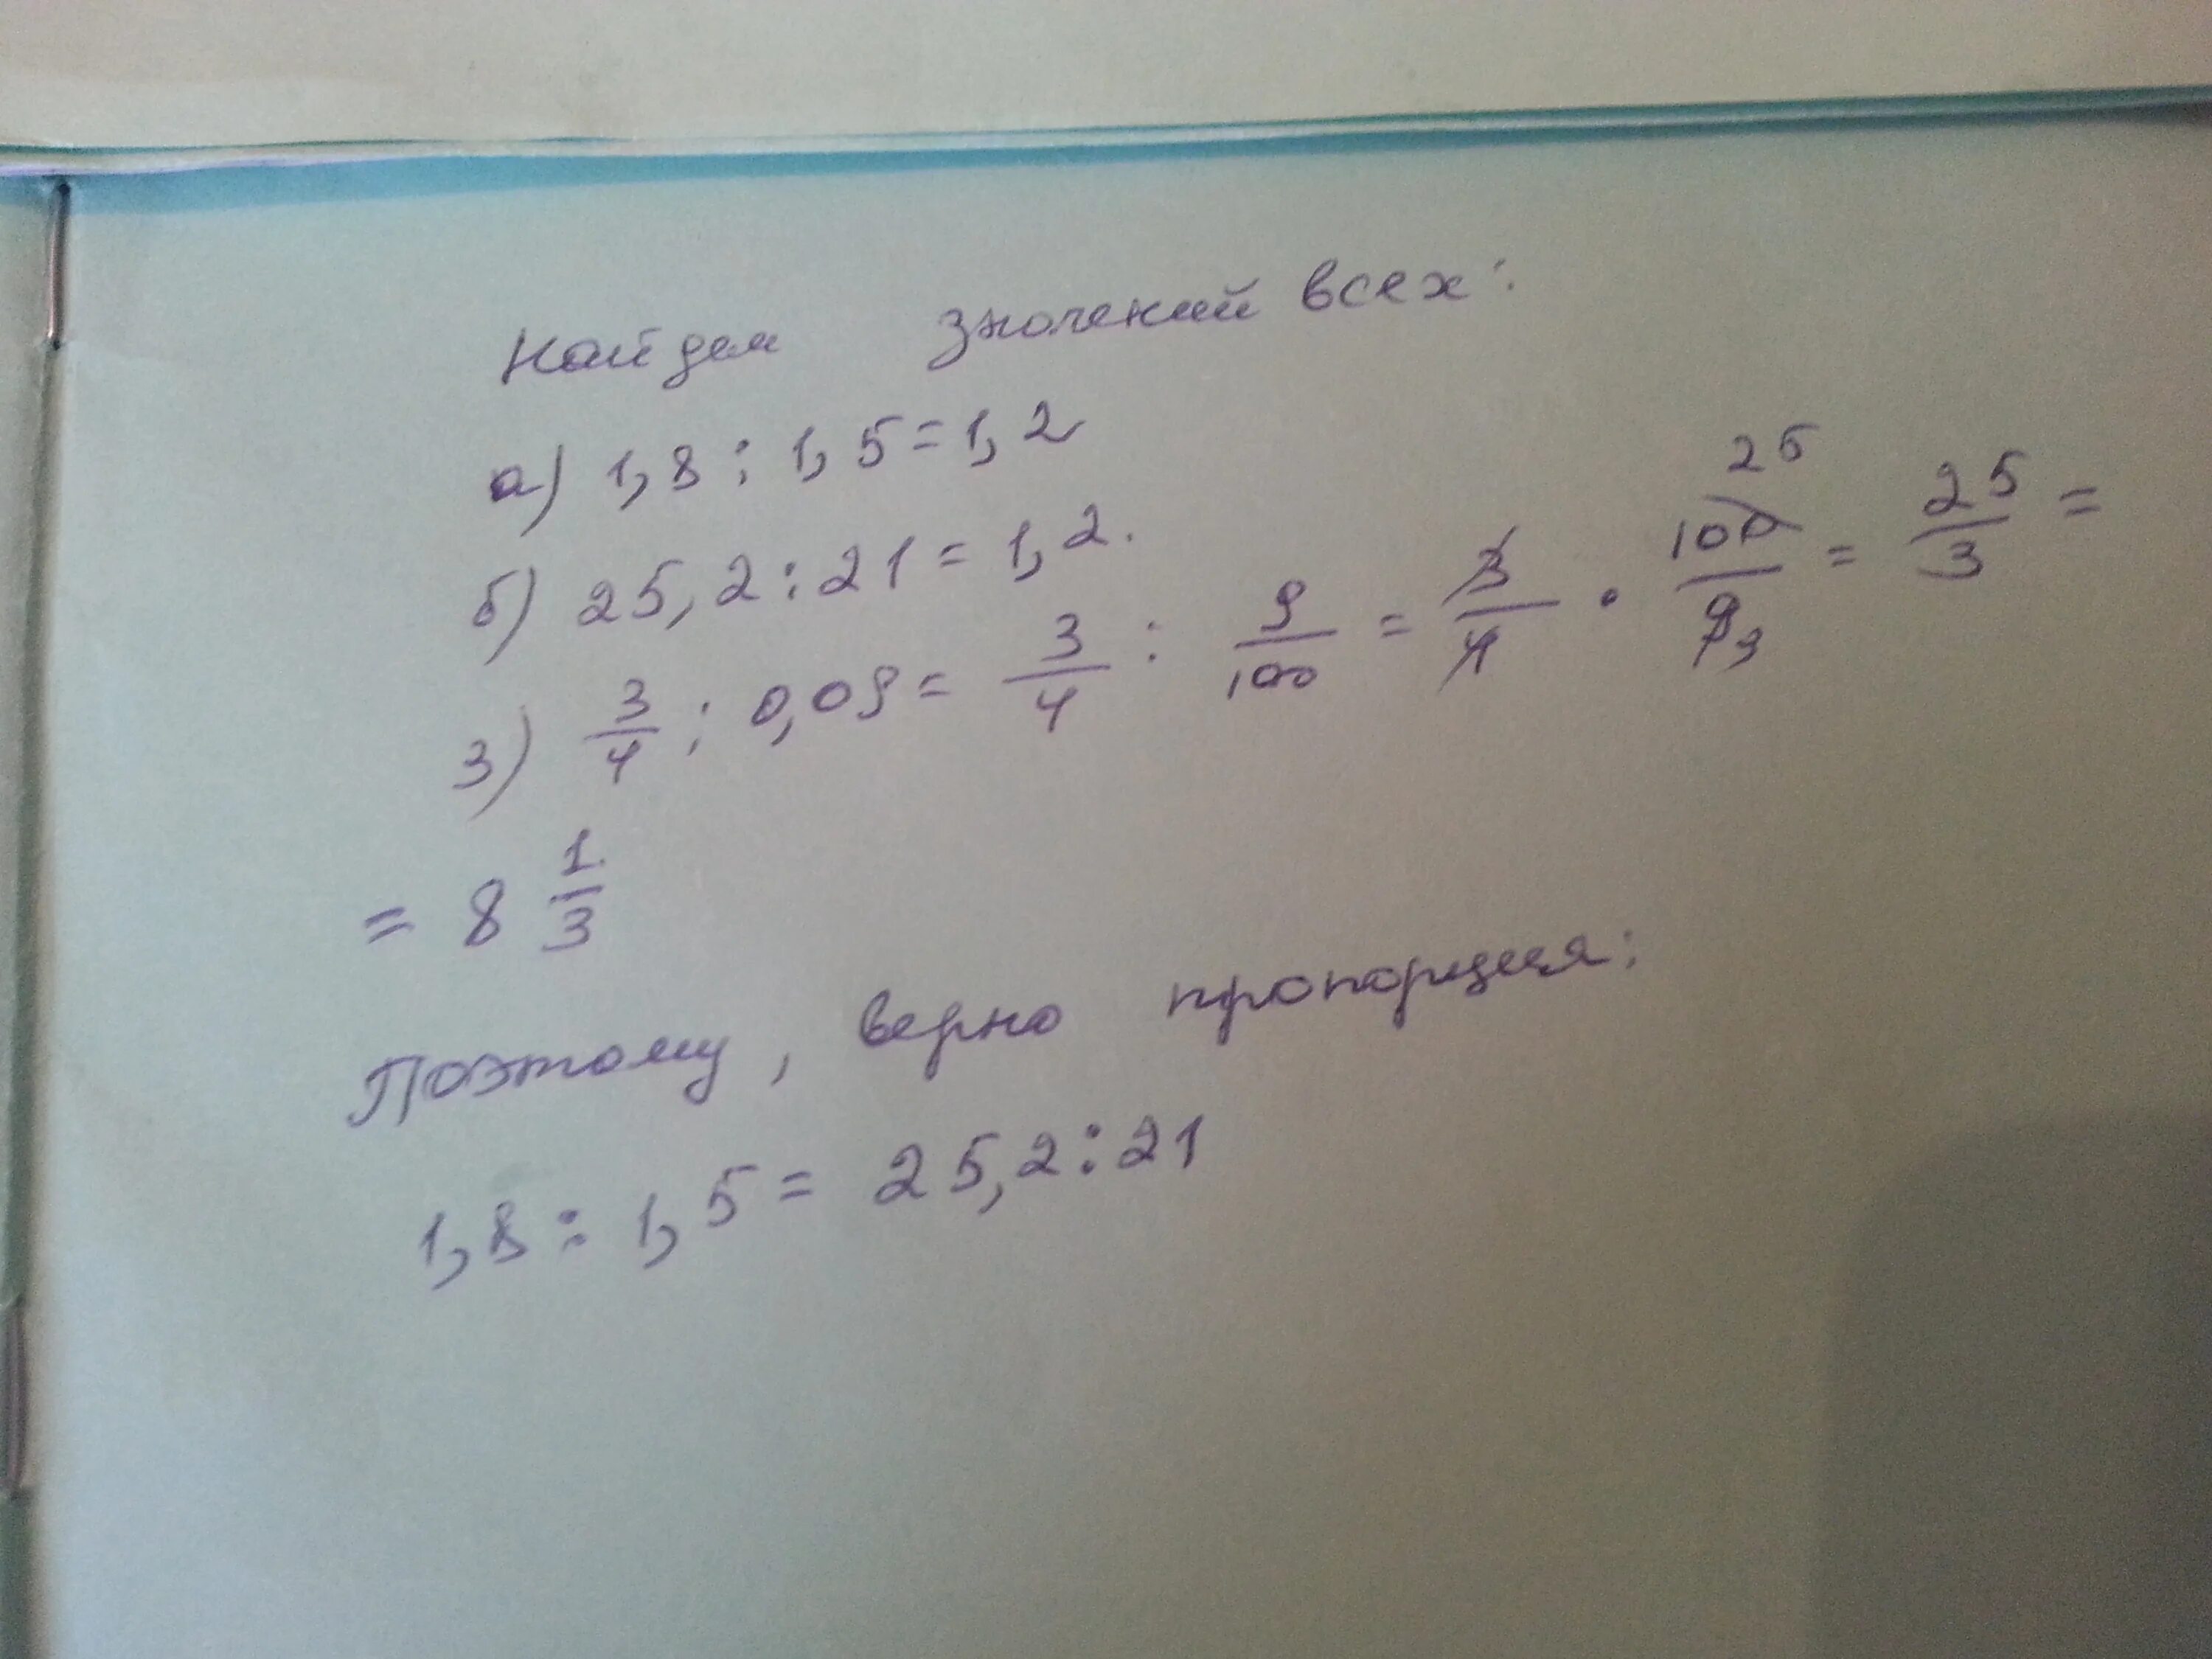 Найдем значений всех:
а) 1,8 : 1,5 = 1,2
б) 25,2 : 21 = 1,2.
3) 3/4 : 0,09 = 3/4 : 9/100 = 3/4 · 100/9 = 25/3 =
25
3
= 8 1/3
Поэтому, верно пропорция:
1,8 : 1,5 = 25,2 : 21